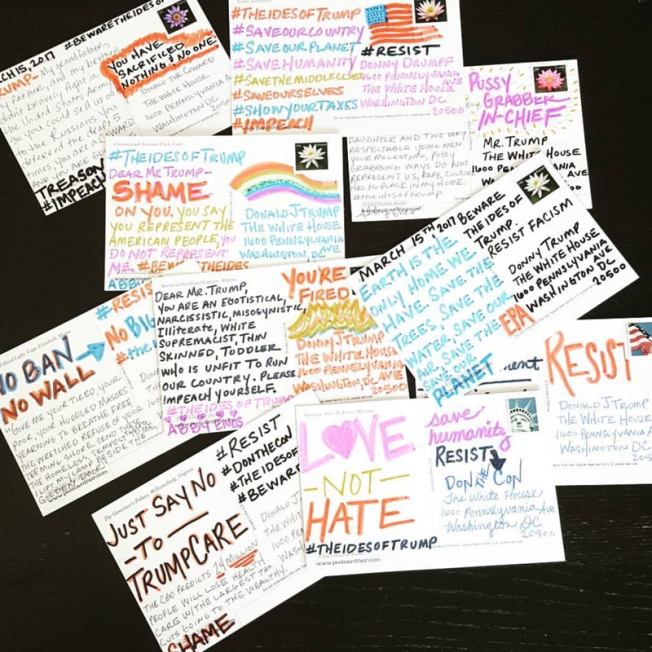 MARCH 15, 2017 #BEWARETHEIDES
YOU HAVE
SACRIFICED
NOTHING & NO ONE
DONALD THE COWARD
THE WHITE HOUSE
1600 PENNSYLVANIA
WASHINGTON DC
TREASON
#IMPEACH
#THEIDESOFTRUMP
#SAVEOURCOUNTRY
#SAVEOURPLANET
#SAVEHUMANITY
#SAVETHEMIDDLECLASS
#SAVEOURSELVES
#SHOWYOURTAXES
#IMPEACH
#RESIST
DONNY DRUMPF
1600 PENNSYLVANIA
THE WHITE HOUSE
WASHINGTON DC
20500
PUSSY
GRABBER
IN-CHIEF
MR. TRUMP
THE WHITE HOUSE
1600 PENNSYLVANIA AVE
WASHINGTON DC
DAUGHTER AND TWO VERY
RESPECTABLE YOUNG MEN
YOUR MOLESTING, PUSSY
GRABBING WAYS DO NOT
REPRESENT US, RAPE CULTURE
HAS NO PLACE IN MY HOME.
#THEIDESOFTRUMP
#THEIDESOFTRUMP
DEAR MR TRUMP-
SHAME
ON YOU. YOU SAY
YOU REPRESENT THE
AMERICAN PEOPLE, YOU
DO NOT REPRESENT
ME. #BEWARETHEIDES
DONALD J TRUMP
THE WHITE HOUSE
1600 PENNSYLVANIA
AVE
WASHINGTON DC
MARCH 15TH 2017 BEWARE
THE IDES OF
TRUMP.
RESIST FACISM
EARTH IS THE
ONLY HOME WE
HAVE. SAVE THE
TREES. SAVE THE
WATER, SAVE OUR
AIR. SAVE THE
EPA
SAVE OUR
PLANET
DONNY TRUMP
THE WHITE HOUSE
1600 PENNSYLVANIA AVE
WASHINGTON DC
20500
DEAR MR. TRUMP,
YOU ARE AN EGOTISTICAL,
NARCISSISTIC, MISOGYNISTIC
ILLITERATE, WHITE
SUPREMACIST, THIN
SKINNED, TODDLER
WHO IS UNFIT TO RUN
OUR COUNTRY. PLEASE
IMPEACH YOURSELF.
#THEIDESOFTRUMP
ABBY ENDS
YOU'RE
FIRED
DONNY TRUMP
THE WHITE HOUSE
1600 PENNSYLVANIA AVE
WASHINGTON, DC
20500
#RESIS
NO BAN
NO WALL
NO BIG
GIVE ME YOUR TIRED, YOUR
POOR, YOUR HUDDLED MASSES
YEARNING TO BREATHE FREE
THE WRETCHED REFUSE OF YOUR
TEEMING SHORE. SEND THESE,
THE HOMELESS, TEMPEST TOSSED
I LIFT MY LAMP BESIDE THE
GOLDEN DOOR
RESIST
DONALD J TRUMP
THE WHITE HOUSE
1600 PENNSYLVANIA A
WASHINGTON DC
20500
JUST SAY NO
-TO-
TRUMPCARE
THE CBO PREDICTS 24 MILLION
PEOPLE WILL LOSE HEALTH
CARE W/THE LARGEST TAX
CUTS GOING TO THE WEALTHY.
SHAME
#RESIST
#DONTHECON
#THEIDESOF
#BEWAR
LOVE
-NOT-
HATE
#THEIDESOFTRUMP
www.postcardfair.com
save
humanity
RESIST
DON THE CON
The White House
1600 Pennsylvania Ave
Washington DC
20500